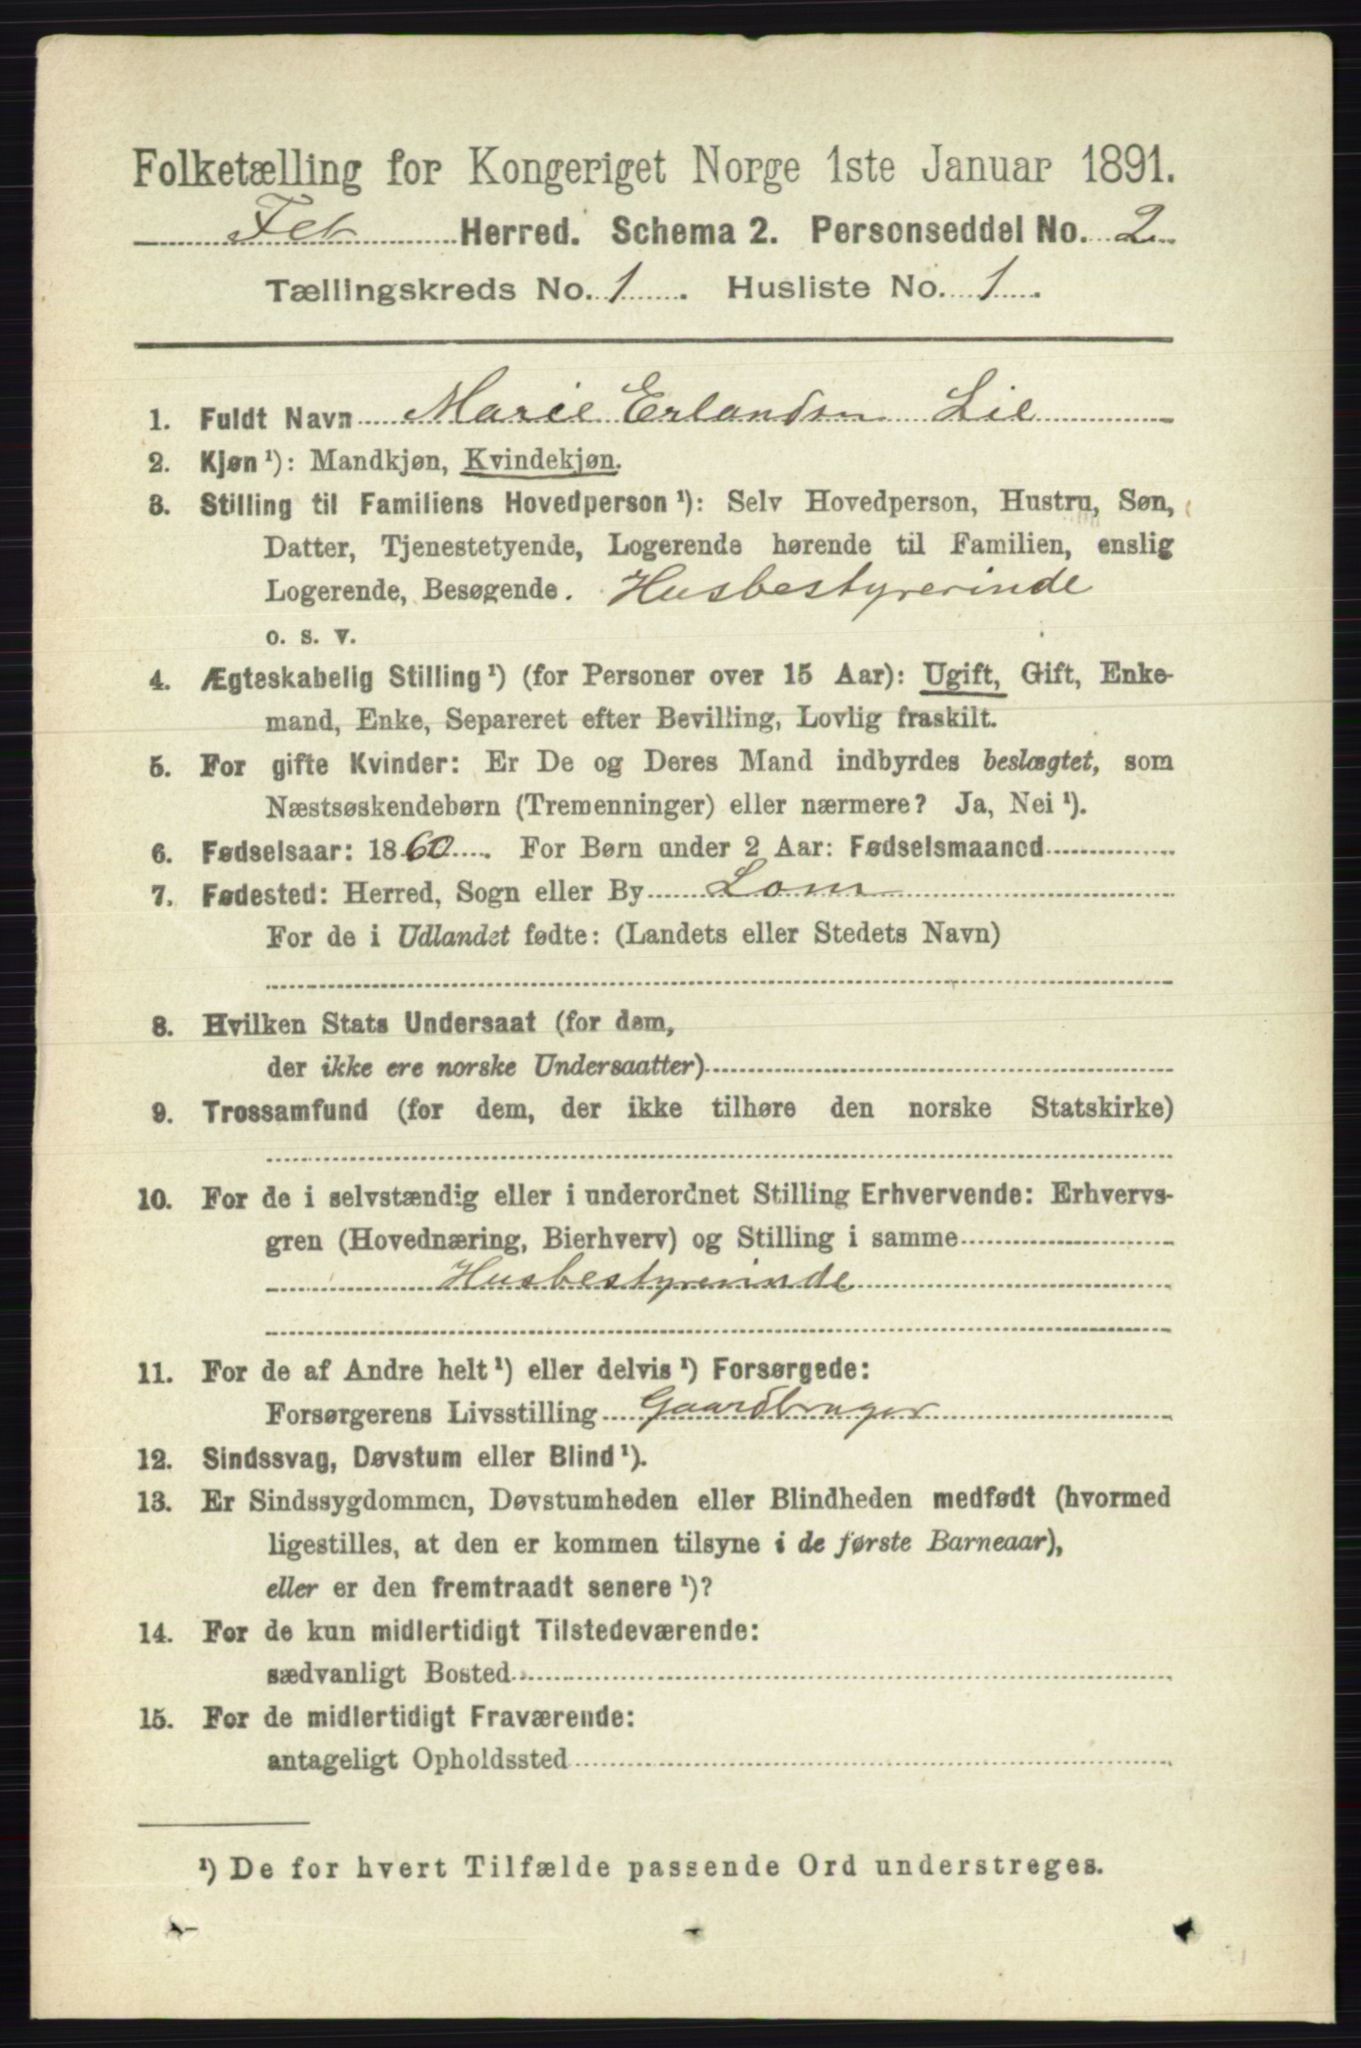 Folketælling for Kongeriget Norge 1ste Januar 1891.
Fet Herred. Schema 2. Personseddel No. 2
Tællingskreds No. 1. Husliste No. 1.
1. Fuldt Navn Marie Erlandsen Lie
2. Kjøn¹): Mandkjøn, Kvindekjøn.
3. Stilling til Familiens Hovedperson¹): Selv Hovedperson, Hustru, Søn,
Datter, Tjenestetyende, Logerende hørende til Familien, enslig
Logerende, Besøgende. Husbestyrerinde
o. s. v.
4. Ægteskabelig Stilling¹) (for Personer over 15 Aar): Ugift, Gift, Enke-
mand, Enke, Separeret efter Bevilling, Lovlig fraskilt.
5. For gifte Kvinder: Er De og Deres Mand indbyrdes beslægtet, som
Næstsøskendebørn (Tremenninger) eller nærmere? Ja, Nei¹).
6. Fødselsaar: 1860. For Børn under 2 Aar: Fødselsmaaned
7. Fødested: Herred, Sogn eller By Lom
For de i Udlandet fødte: (Landets eller Stedets Navn)
8. Hvilken Stats Undersaat (for dem,
der ikke ere norske Undersaatter)
9. Trossamfund (for dem, der ikke tilhøre den norske Statskirke)
10. For de i selvstændig eller i underordnet Stilling Erhvervende: Erhvervs-
gren (Hovednæring, Bierhverv) og Stilling i samme
Husbestyrerinde
11. For de af Andre helt¹) eller delvis¹) Forsørgede:
Forsørgerens Livsstilling Gaardbruger
12. Sindssvag, Døvstum eller Blind¹).
13. Er Sindssygdommen, Døvstumheden eller Blindheden medfødt (hvormed
ligestilles, at den er kommen tilsyne i de første Barneaar),
eller er den fremtraadt senere¹)?
14. For de kun midlertidigt Tilstedeværende:
sædvanligt Bosted
15. For de midlertidigt Fraværende:
antageligt Opholdssted
¹) De for hvert Tilfælde passende Ord understreges.